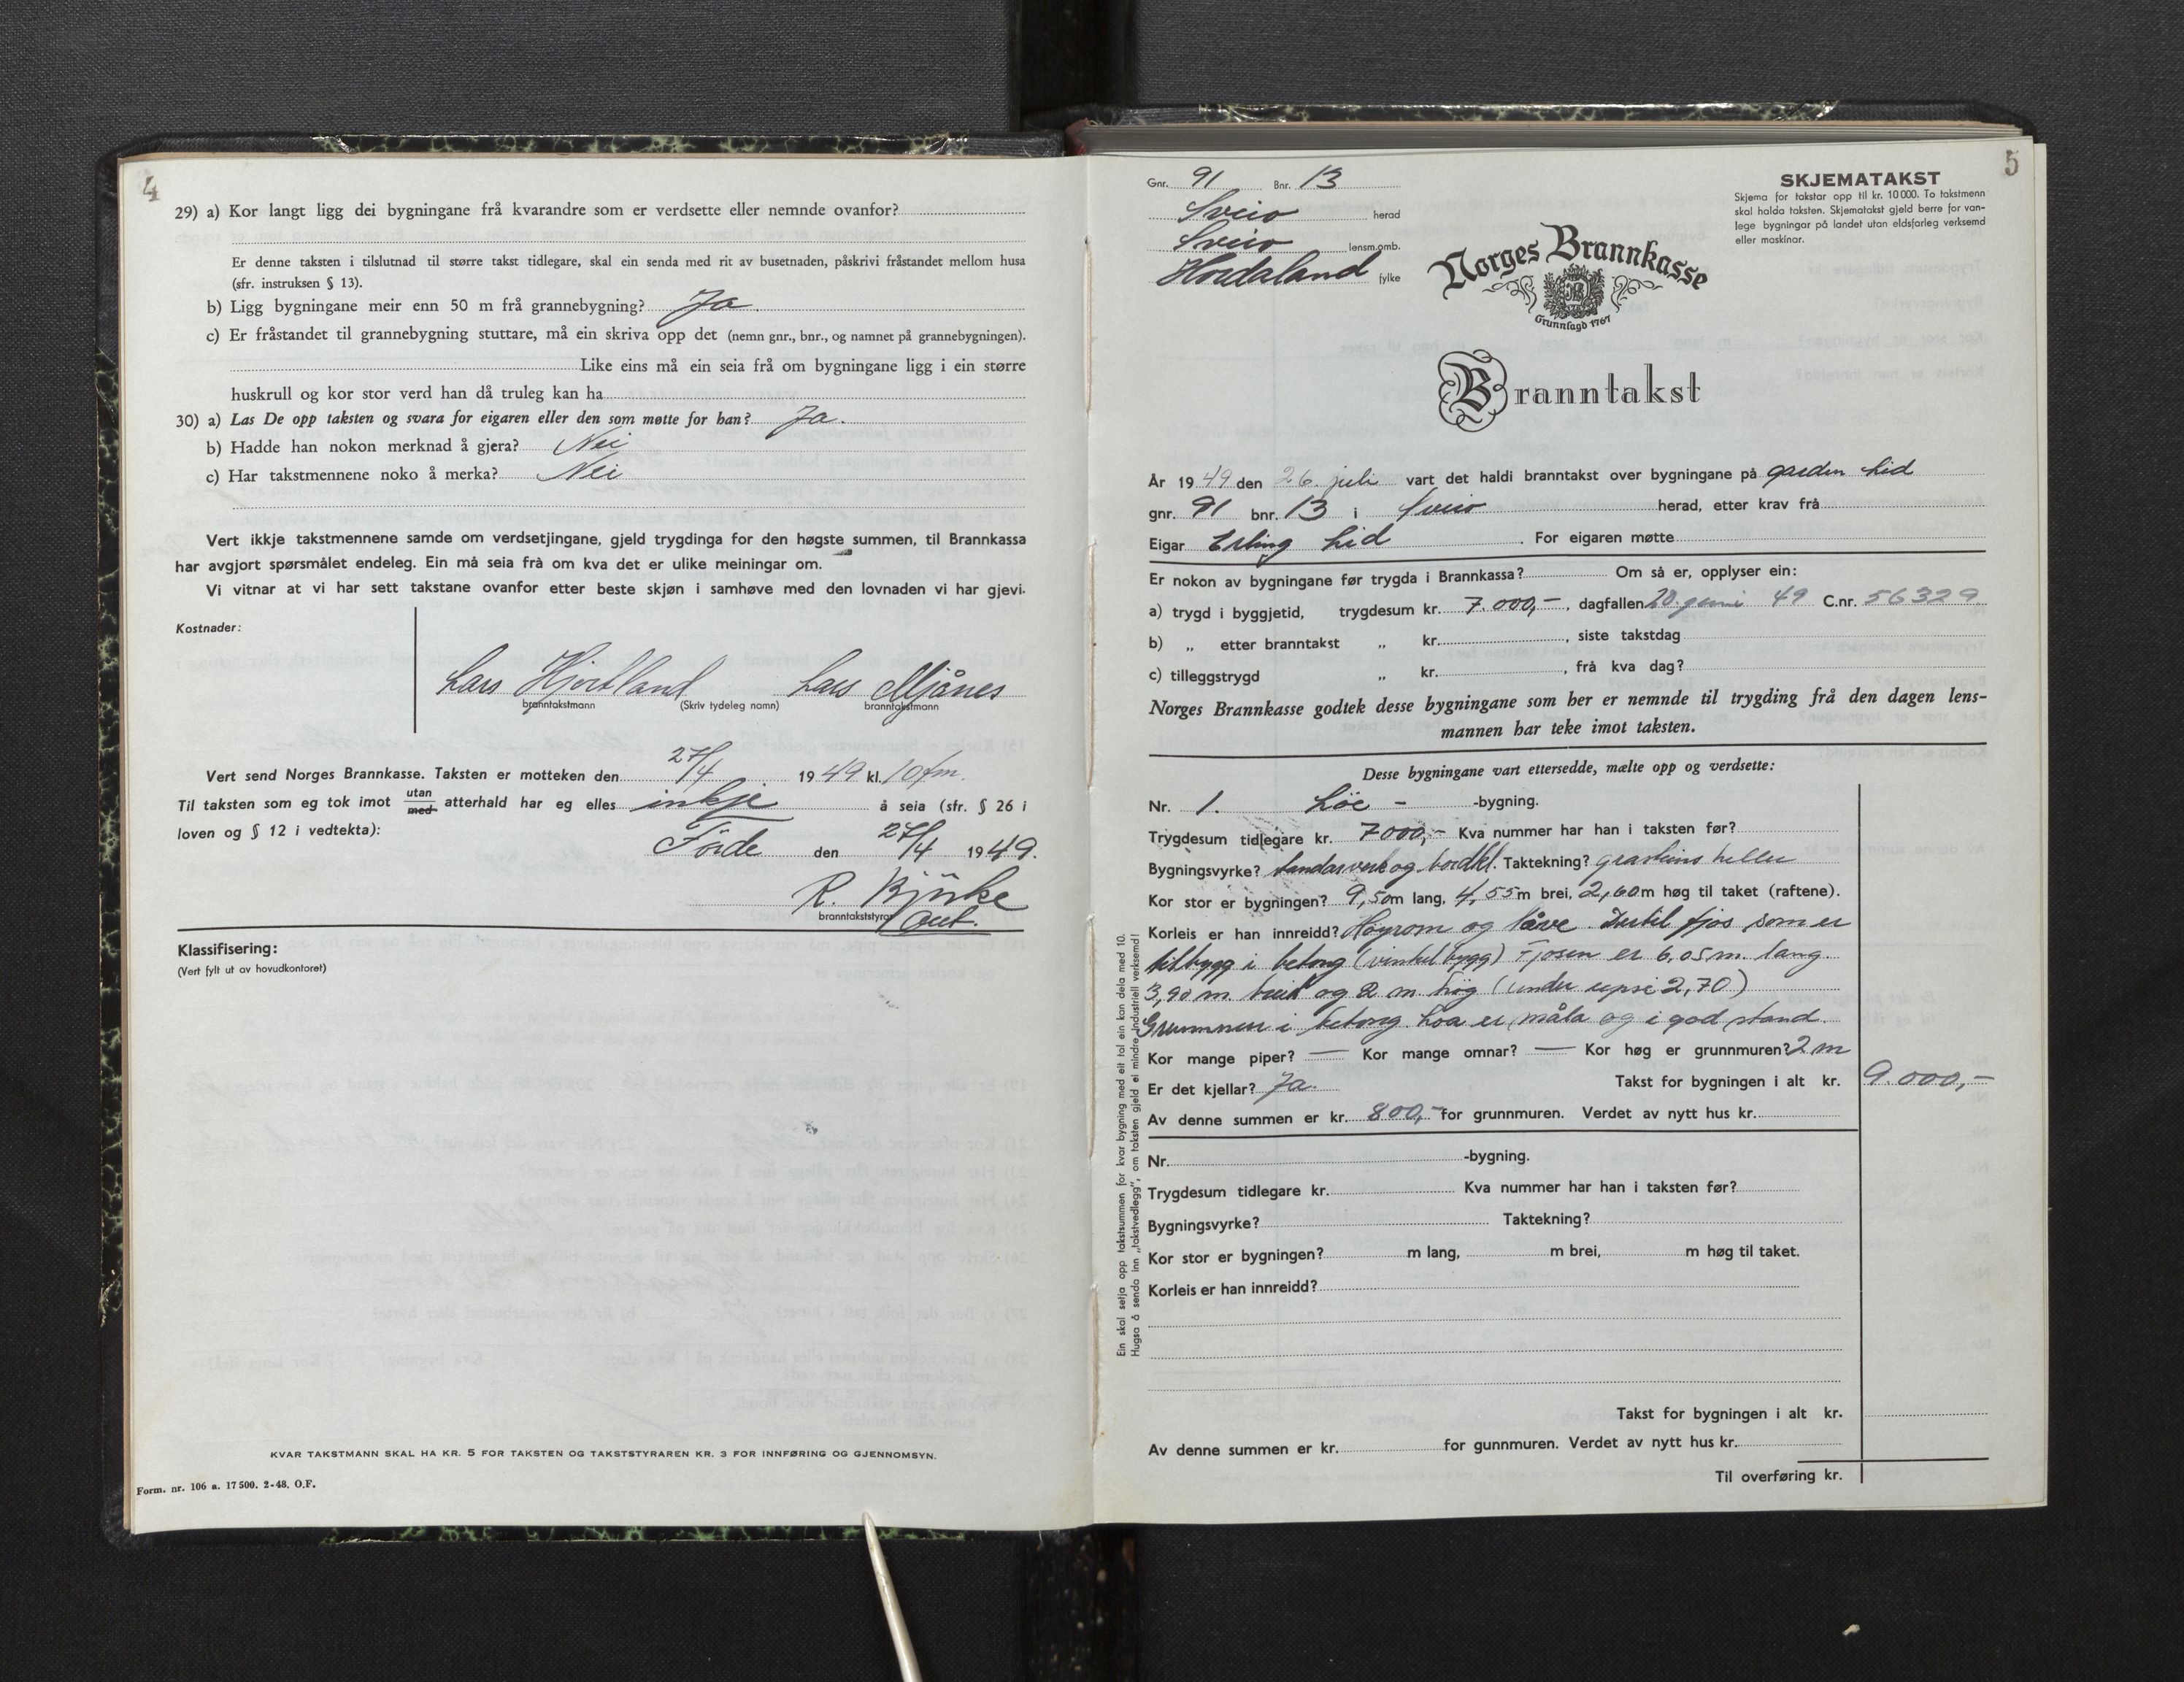 4
29) a) Kor langt ligg dei bygningane frå kvarandre som er verdsette eller nemnde ovanfor?
Er denne taksten i tilslutnad til større takst tidlegare, skal ein senda med rit av busetnaden, påskrivi fråstandet mellom husa
(sfr. instruksen § 13).
b) Ligg bygningane meir enn 50 m frå grannebygning? Ja.
c) Er fråstandet til grannebygning stuttare, må ein skriva opp det (nemn gnr., bnr., og namnet på grannebygningen).
Like eins må ein seia frå om bygningane ligg i ein større
huskrull og kor stor verd han då truleg kan ha
30) a) Las De opp taksten og svara for eigaren eller den som møtte for han? Ja.
b) Hadde han nokon merknad å gjera? Nei
c) Har takstmennene noko å merka? Nei
Vert ikkje takstmennene samde om verdsetjingane, gjeld trygdinga for den høgste summen, til Brannkassa
har avgjort spørsmålet endeleg. Ein må seia frå om kva det er ulike meiningar om.
Vi vitnar at vi har sett takstane ovanfor etter beste skjøn i samhøve med den lovnaden vi har gjevi.
Kostnader:
Lars Hjortland Lars Mjånes
branntakstmann (Skriv tydeleg namn) branntakstmann
Vert send Norges Brannkasse. Taksten er motteken den 27/4 1949 kl. 10 fm.
Til taksten som eg tok imot utan med atterhald har eg elles inkje å seia (sfr. § 26 i
loven og § 12 i vedtekta):
Förde den 27/4 1949.
R. Björke
branntakststyrar
Klassifisering:
(Vert fylt ut av hovudkontoret)
KVAR TAKSTMANN SKAL HA KR. 5 FOR TAKSTEN OG TAKSTSTYRAREN KR. 3 FOR INNFØRING OG GJENNOMSYN.
Form. nr. 106 a. 17500. 2-48. O.F.
5
Gnr. 91 Bnr. 13
Sveio herad
Sveio lensm.omb.
Hordaland fylke
SKJEMATAKST
Skjema for takstar opp til kr. 10000. To takstmenn
skal halda taksten. Skjematakst gjeld berre for van-
lege bygningar på landet utan eldsfarleg verksemd
eller maskinar.
Norges Brannkasse
Grunnlagd 1767
Branntakst
År 1949 den 26. juli vart det haldi branntakst over bygningane på garden Lid
gnr. 91 bnr. 13 i Sveio herad, etter krav frå
Eigar Erling Lid. For eigaren møtte
Er nokon av bygningane før trygda i Brannkassa? Om så er, opplyser ein:
a) trygd i byggjetid, trygdesum kr. 7.000,-, dagfallen 20. juni 49 C.nr. 56329
b) „ etter branntakst „ kr. , siste takstdag
c) tilleggstrygd „ kr. , frå kva dag?
Norges Brannkasse godtek desse bygningane som her er nemnde til trygding frå den dagen lens-
mannen har teke imot taksten.
Desse bygningane vart ettersedde, mælte opp og verdsette:
Nr. 1. Löe - -bygning.
Trygdesum tidlegare kr. 7000,- Kva nummer har han i taksten før?
Bygningsvyrke? Sandarverk og bordkl. Taktekning? gråsteins heller
Kor stor er bygningen? 9,50m lang, 4,55m brei, 2,60m høg til taket (raftene).
Korleis er han innreidd? Høyrom og låve. Dertil fjos som er
tilbygg i betong (vinkelbygg) Fjosen er 6,05 m. lang
3,90 m. breid og 2 m høg (under upsi 2,70)
Grunnmur i betong. Löa er måla og i god stand.
Kor mange piper? — Kor mange omnar? — Kor høg er grunnmuren? 2 m
Er det kjellar? Ja. Takst for bygningen i alt kr. 9.000,-
Av denne summen er kr. 800,- for grunnmuren. Verdet av nytt hus kr.
Nr. -bygning.
Trygdesum tidlegare kr. Kva nummer har han i taksten før?
Bygningsvyrke? Taktekning?
Kor stor er bygningen? m lang, m brei, m høg til taket.
Korleis er han innreidd?
Takst for bygningen i alt kr.
Av denne summen er kr. for gunnmuren. Verdet av nytt hus kr.
Til overføring kr.
Ein skal setja opp takstsummen for kvar bygning med eit tal ein kan dela med 10.
Hugsa å senda inn „takstvedlegg", om taksten gjeld ei mindre industriell verksemd!